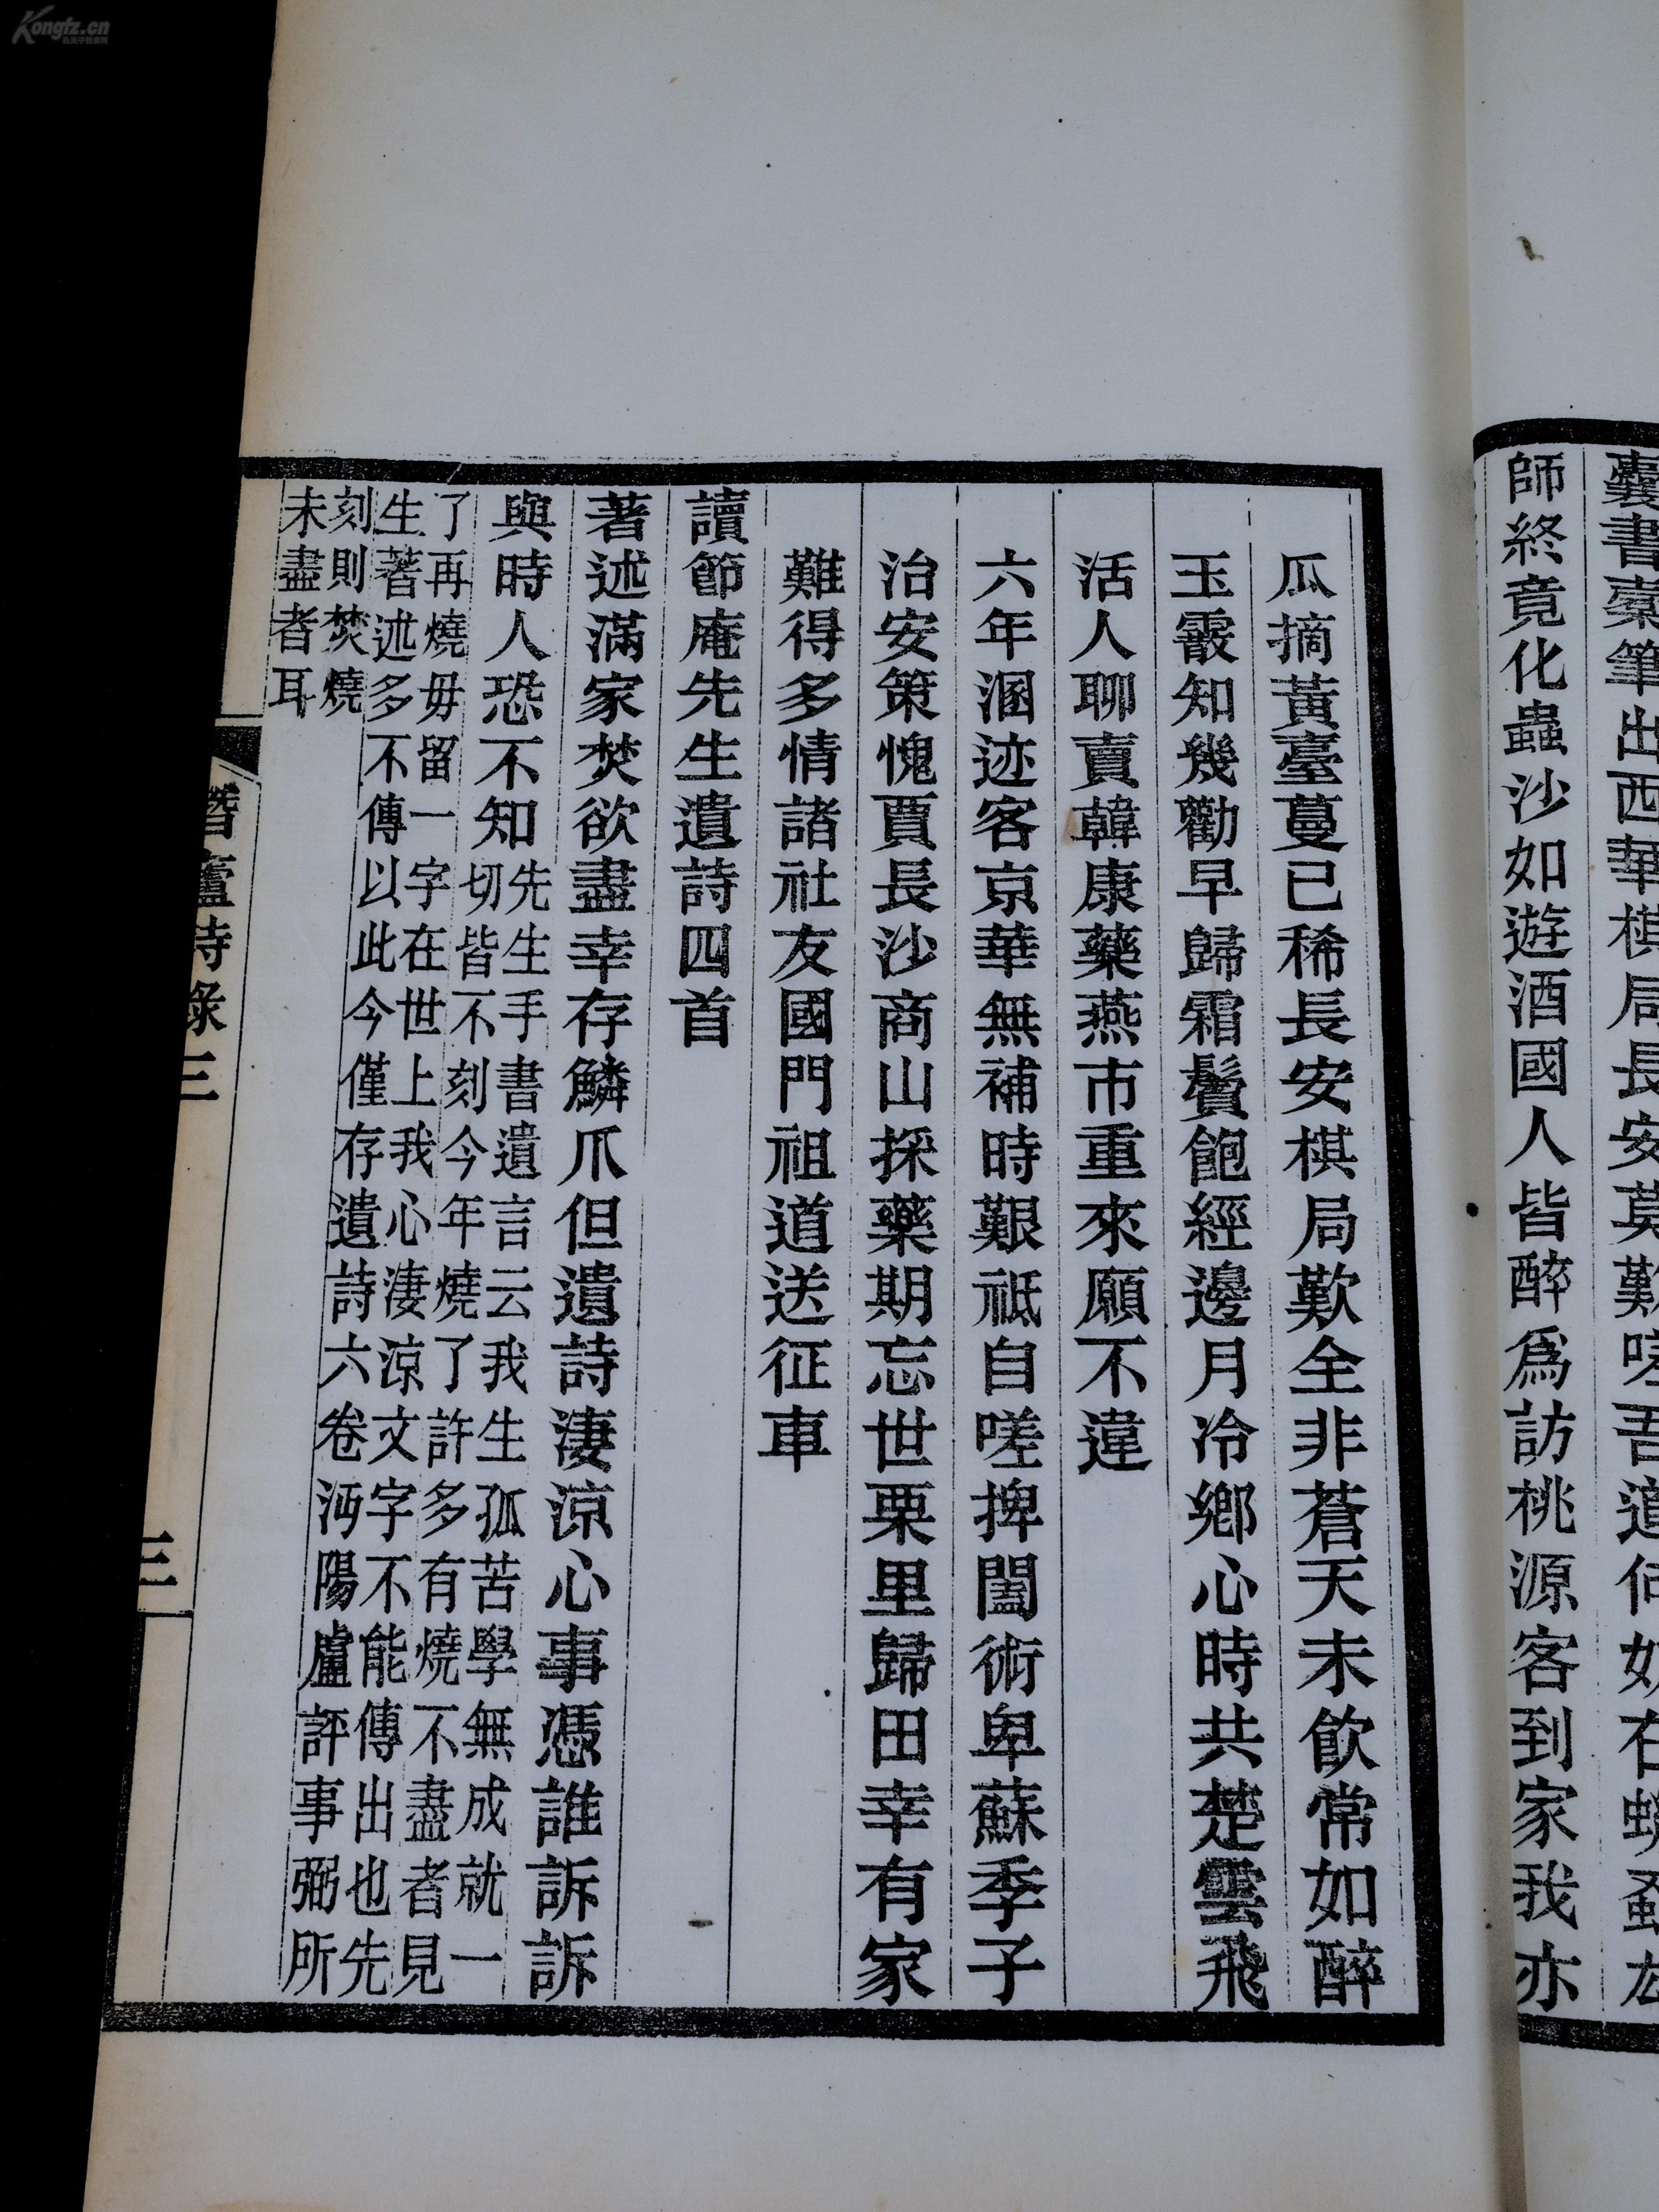 師終竟化蟲沙如遊酒國人皆醉爲訪桃源客到家我亦
瓜摘黃臺蔓已稀長安棋局歎全非蒼天未飲常如醉
玉霰知幾勸早歸霜鬢飽經邊月冷鄉心時共楚雲飛
活人聊賣韓康藥燕市重來願不違
六年溷迹客京華無補時艱祗自嗟捭闔術卑蘇季子
治安策愧賈長沙商山採藥期忘世栗里歸田幸有家
難得多情諸社友國門祖道送征車
讀節庵先生遺詩四首
著述滿家焚欲盡幸存鱗爪但遺詩淒涼心事憑誰訴訴
與時人恐不知
先生手書遺言云我生孤苦學無成就一
切皆不刻今年燒了許多有燒不盡者見
了再燒毋留一字在世上我心淒涼文字不能傳出也先
生著述多不傳以此今僅存遺詩六卷沔陽盧評事弼所
刻則焚燒
未盡者耳
詩錄三
三
Kongfz.cn